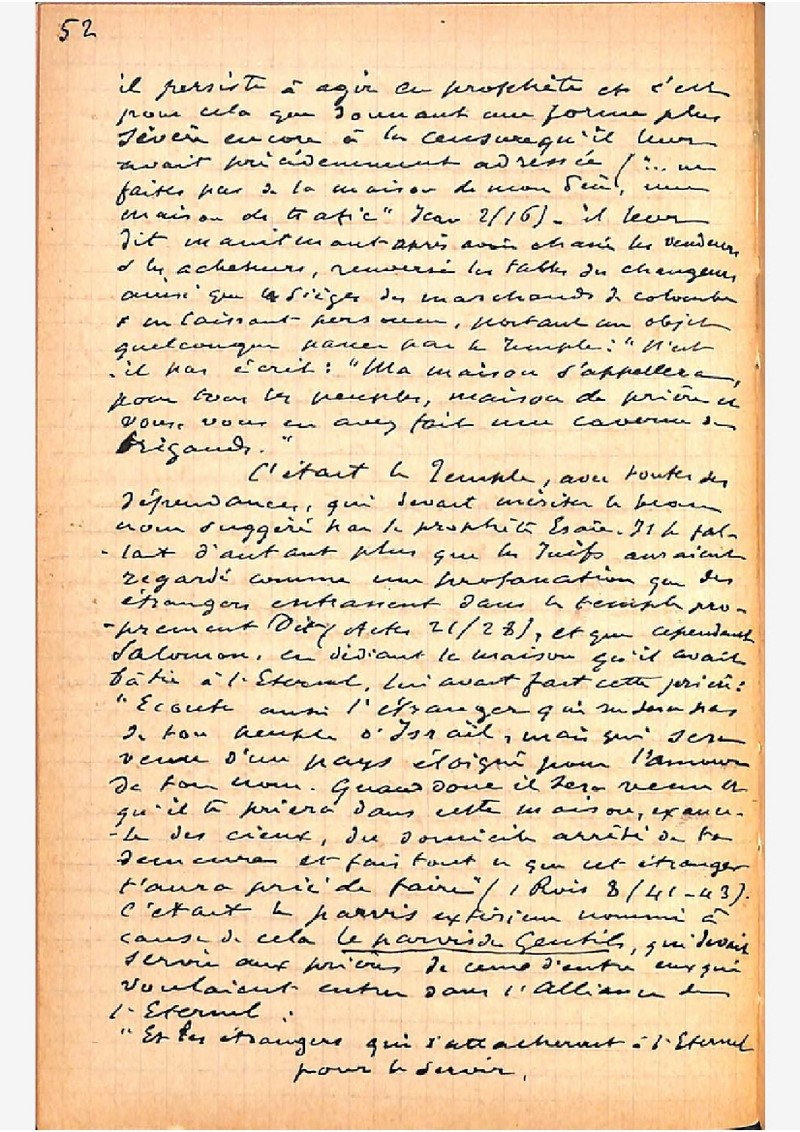 52
il persiste à agir en prophète et c'est
pour cela que donnant une forme plus
sévère encore à la censure qu'il leur
avait précédemment adressée ("... ne
faites pas de la maison de mon Père, une
maison de trafic" Jean 2/16) - il leur
dit maintenant après avoir chassé les vendeurs
& les acheteurs, renversé les tables des changeurs
ainsi que les sièges des marchands de colombes
& ne laissant personne, portant un objet
quelconque passer par le Temple : "N'est
-il pas écrit : "Ma maison s'appellera,
pour tous les peuples, maison de prière et
vous, vous en avez fait une caverne de
brigands."
C'était le Temple, avec toutes ses
dépendances, qui devait mériter le beau
nom suggéré par le prophète Esaïe. Il le fal-
-lait d'autant plus que les Juifs auraient
regardé comme une profanation que des
étrangers entrassent dans le temple pro-
-prement dit (Actes 21/28), et que cependant
Salomon, en dédiant la maison qu'il avait
bâtie à l'Eternel, lui avait fait cette prière :
"Ecoute aussi l'étranger qui ne sera pas
de ton peuple d'Israël, mais qui sera
venu d'un pays éloigné pour l'amour
de ton nom. Quand donc il sera venu et
qu'il te priera dans cette maison, exauce-
-le des cieux, du domicile arrêté de ta
demeure et fais tout ce que cet étranger
t'aura prié de faire" (1 Rois 8/41-43).
C'était le parvis extérieur nommé à
cause de cela le parvis des Gentils, qui devait
servir aux prières de ceux d'entre eux qui
voulaient entrer dans l'Alliance de
l'Eternel :
"Et les étrangers qui s'attacheront à l'Eternel
pour le servir,